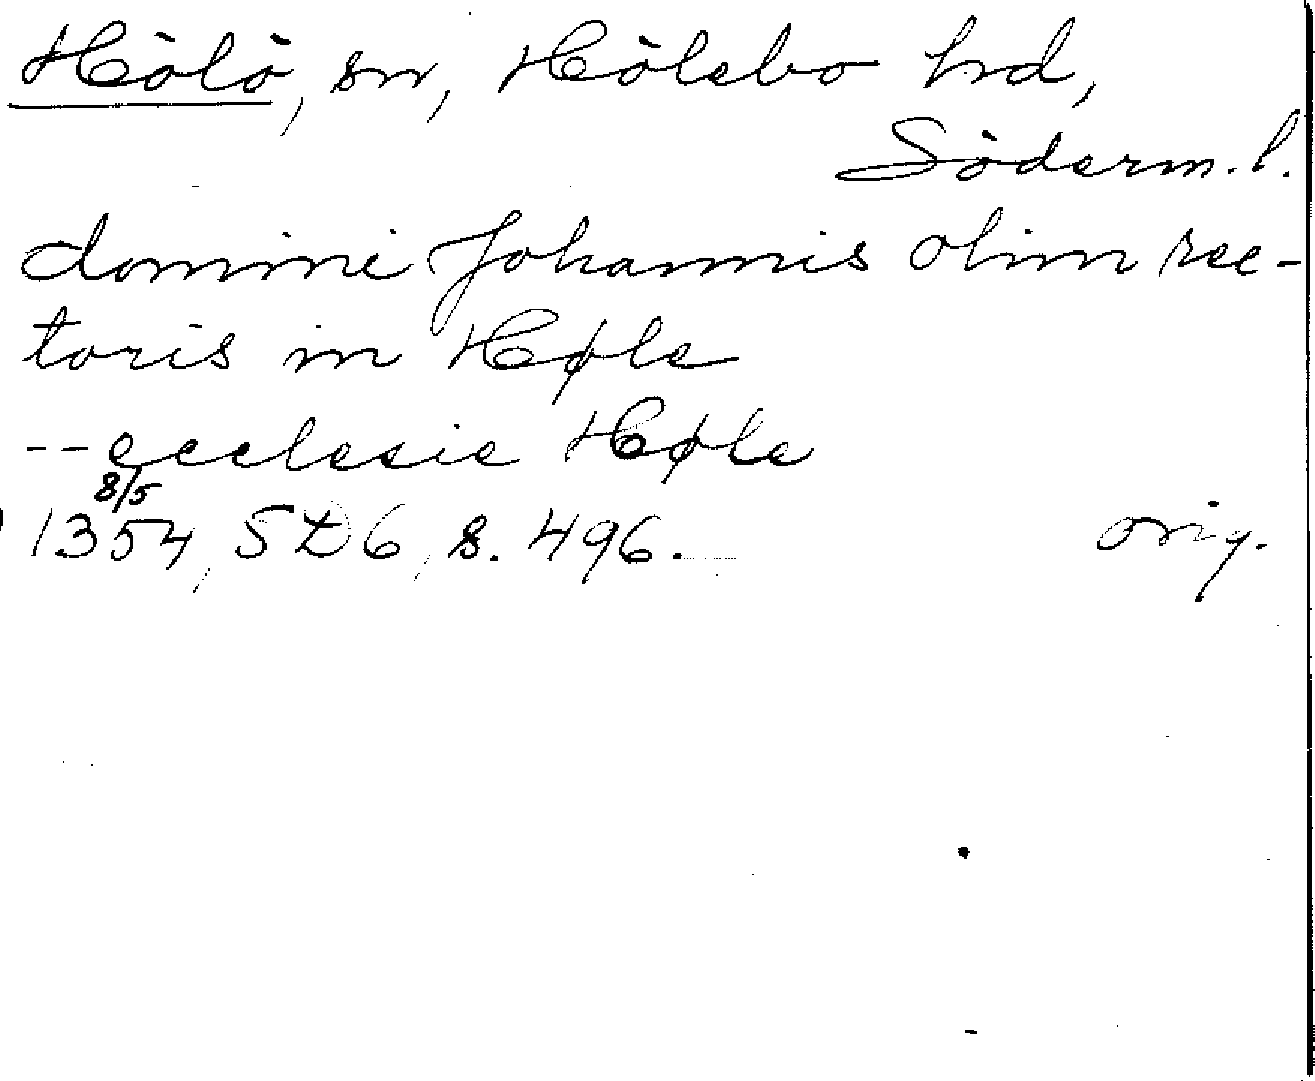 Hölö, sn, Hölebo hd,
Söderm. l.
domini Johannis olim rec-
toris in Høle
-- ecclesie Høle
8/5
1354, SD 6, s. 496. orig.